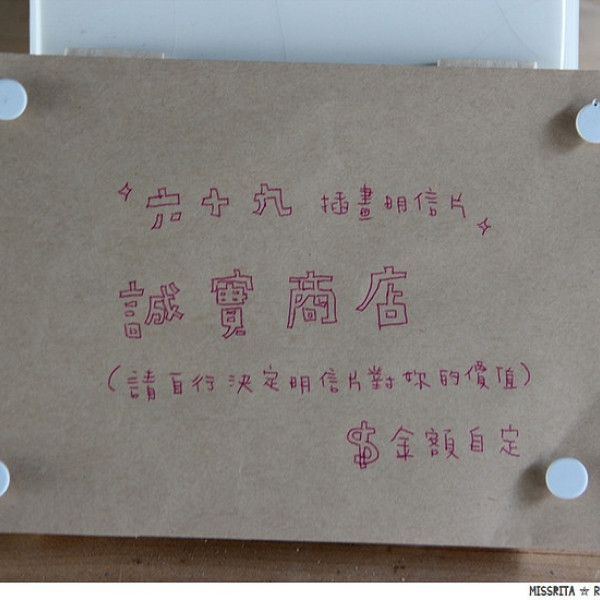 六十九 插畫明信片
誠實商店
(請自行決定明信片對妳的價值)
$金額自定
MISSRITA ☆ R